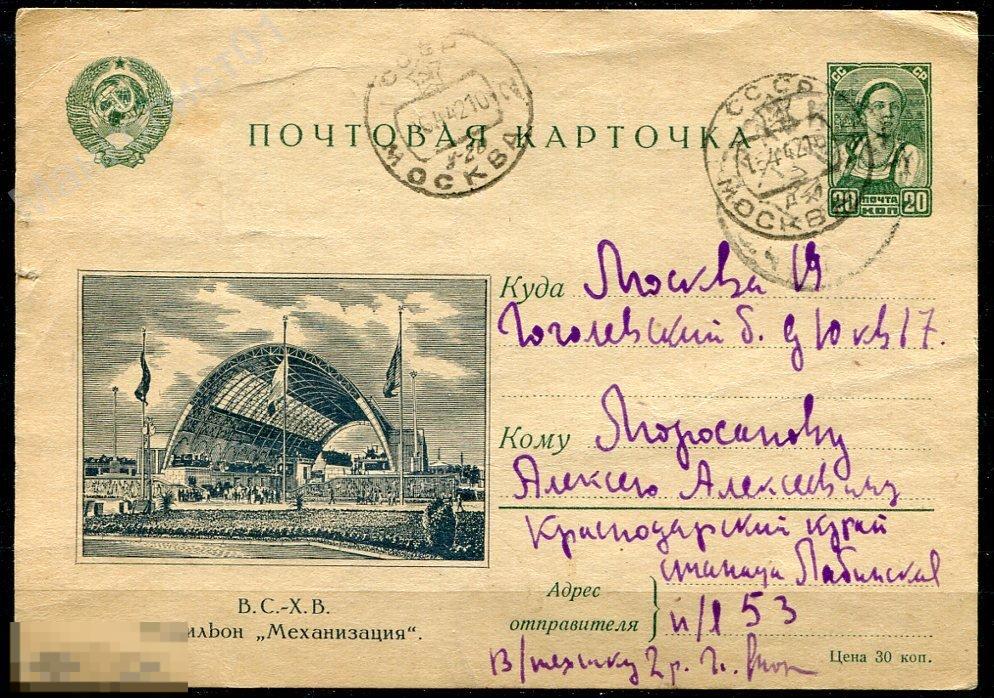 ПОЧТОВАЯ КАРТОЧКА
СССР
МОСКВА
СССР
МОСКВА
СС СР
20 ПОЧТА 20
КОП
Куда Москва 19
Гоголевский б. д 10 кв 17.
Кому
Алексею Алексеевичу
Краснодарский край
станица Лабинская
Адрес
отправителя
п/я 53
В/технику 2 р.
Цена 30 коп.
В.С.-Х.В.
„Механизация“.